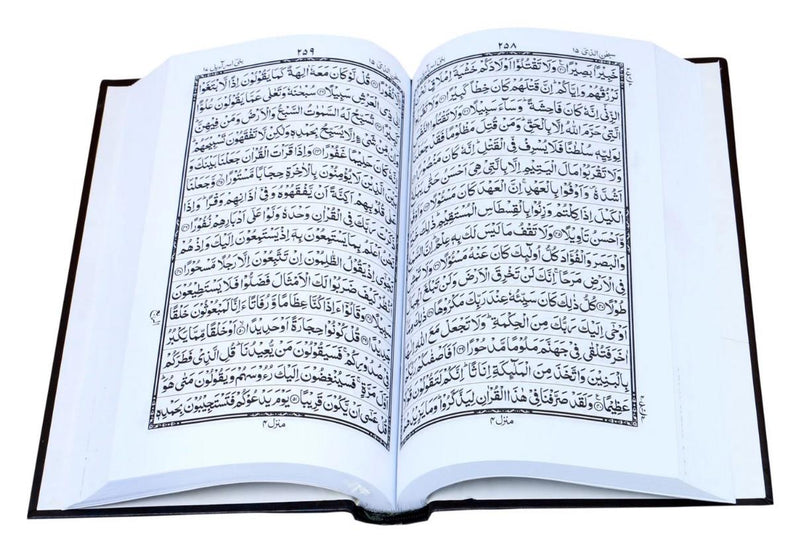 ٢٥٨
سبحن الذي ١٥
خَبِيْرًۢا بَصِيْرًا ۝ وَلَا تَقْتُلُوْٓا اَوْلَادَكُمْ خَشْيَةَ اِمْلَاقٍ
نَرْزُقُهُمْ وَاِيَّاكُمْ اِنَّ قَتْلَهُمْ كَانَ خِطْاً كَبِيْرًا ۝
الزِّنٰٓى اِنَّهٗ كَانَ فَاحِشَةً وَسَآءَ سَبِيْلًا ۝ وَلَا تَقْتُلُوا
الَّتِيْ حَرَّمَ اللّٰهُ اِلَّا بِالْحَقِّ وَمَنْ قُتِلَ مَظْلُوْمًا
لِوَلِيِّهٖ سُلْطٰنًا فَلَا يُسْرِفْ فِّى الْقَتْلِ اِنَّهٗ كَانَ
وَلَا تَقْرَبُوْا مَالَ الْيَتِيْمِ اِلَّا بِالَّتِيْ هِيَ اَحْسَنُ حَتّٰى
اَشُدَّهٗ وَاَوْفُوْا بِالْعَهْدِ اِنَّ الْعَهْدَ كَانَ مَسْـُٔوْلًا
الْكَيْلَ اِذَا كِلْتُمْ وَزِنُوْا بِالْقِسْطَاسِ الْمُسْتَقِيْمِ ذٰلِكَ
وَاَحْسَنُ تَاْوِيْلًا ۝ وَلَا تَقْفُ مَا لَيْسَ لَكَ بِهٖ عِلْمٌ
وَالْبَصَرَ وَالْفُؤَادَ كُلُّ اُولٰٓئِكَ كَانَ عَنْهُ مَسْـُٔوْلًا ۝
فِى الْاَرْضِ مَرَحًا اِنَّكَ لَنْ تَخْرِقَ الْاَرْضَ وَلَنْ تَبْلُغَ
طُوْلًا ۝ كُلُّ ذٰلِكَ كَانَ سَيِّئُهٗ عِنْدَ رَبِّكَ مَكْرُوْهًا ۝
اَوْحٰٓى اِلَيْكَ رَبُّكَ مِنَ الْحِكْمَةِ وَلَا تَجْعَلْ مَعَ اللّٰهِ
اٰخَرَ فَتُلْقٰى فِيْ جَهَنَّمَ مَلُوْمًا مَّدْحُوْرًا ۝ اَفَاَصْفٰىكُمْ
بِالْبَنِيْنَ وَاتَّخَذَ مِنَ الْمَلٰٓئِكَةِ اِنَاثًا اِنَّكُمْ لَتَقُوْلُوْنَ
عَظِيْمًا ۝ وَلَقَدْ صَرَّفْنَا فِيْ هٰذَا الْقُرْاٰنِ لِيَذَّكَّرُوْا وَمَا يَزِيْدُهُمْ
منزل ٤
٢٥٩
بنى اسرآءيل ١٧
نُفُوْرًا ۝ قُلْ لَّوْ كَانَ مَعَهٗٓ اٰلِهَةٌ كَمَا يَقُوْلُوْنَ اِذًا لَّابْتَغَوْا
ذِى الْعَرْشِ سَبِيْلًا ۝ سُبْحٰنَهٗ وَتَعٰلٰى عَمَّا يَقُوْلُوْنَ عُلُوًّا
تُسَبِّحُ لَهُ السَّمٰوٰتُ السَّبْعُ وَالْاَرْضُ وَمَنْ فِيْهِنَّ
مِّنْ شَيْءٍ اِلَّا يُسَبِّحُ بِحَمْدِهٖ وَلٰكِنْ لَّا تَفْقَهُوْنَ تَسْبِيْحَهُمْ
كَانَ حَلِيْمًا غَفُوْرًا ۝ وَاِذَا قَرَاْتَ الْقُرْاٰنَ جَعَلْنَا بَيْنَكَ وَ
بَيْنَ الَّذِيْنَ لَا يُؤْمِنُوْنَ بِالْاٰخِرَةِ حِجَابًا مَّسْتُوْرًا ۝ وَّجَعَلْنَا
عَلٰى قُلُوْبِهِمْ اَكِنَّةً اَنْ يَّفْقَهُوْهُ وَفِيْٓ اٰذَانِهِمْ وَقْرًا وَاِذَا
ذَكَرْتَ رَبَّكَ فِى الْقُرْاٰنِ وَحْدَهٗ وَلَّوْا عَلٰٓى اَدْبَارِهِمْ نُفُوْرًا ۝
نَحْنُ اَعْلَمُ بِمَا يَسْتَمِعُوْنَ بِهٖٓ اِذْ يَسْتَمِعُوْنَ اِلَيْكَ وَاِذْ هُمْ
نَجْوٰٓى اِذْ يَقُوْلُ الظّٰلِمُوْنَ اِنْ تَتَّبِعُوْنَ اِلَّا رَجُلًا مَّسْحُوْرًا ۝
اُنْظُرْ كَيْفَ ضَرَبُوْا لَكَ الْاَمْثَالَ فَضَلُّوْا فَلَا يَسْتَطِيْعُوْنَ
سَبِيْلًا ۝ وَقَالُوْٓا ءَاِذَا كُنَّا عِظَامًا وَّرُفَاتًا ءَاِنَّا لَمَبْعُوْثُوْنَ خَلْقًا
جَدِيْدًا ۝ قُلْ كُوْنُوْا حِجَارَةً اَوْ حَدِيْدًا ۝ اَوْ خَلْقًا مِّمَّا يَكْبُرُ
فِيْ صُدُوْرِكُمْ فَسَيَقُوْلُوْنَ مَنْ يُّعِيْدُنَا قُلِ الَّذِيْ فَطَرَكُمْ
اَوَّلَ مَرَّةٍ فَسَيُنْغِضُوْنَ اِلَيْكَ رُءُوْسَهُمْ وَيَقُوْلُوْنَ مَتٰى هُوَ
قُلْ عَسٰٓى اَنْ يَّكُوْنَ قَرِيْبًا ۝ يَوْمَ يَدْعُوْكُمْ فَتَسْتَجِيْبُوْنَ بِحَمْدِهٖ
منزل ٤